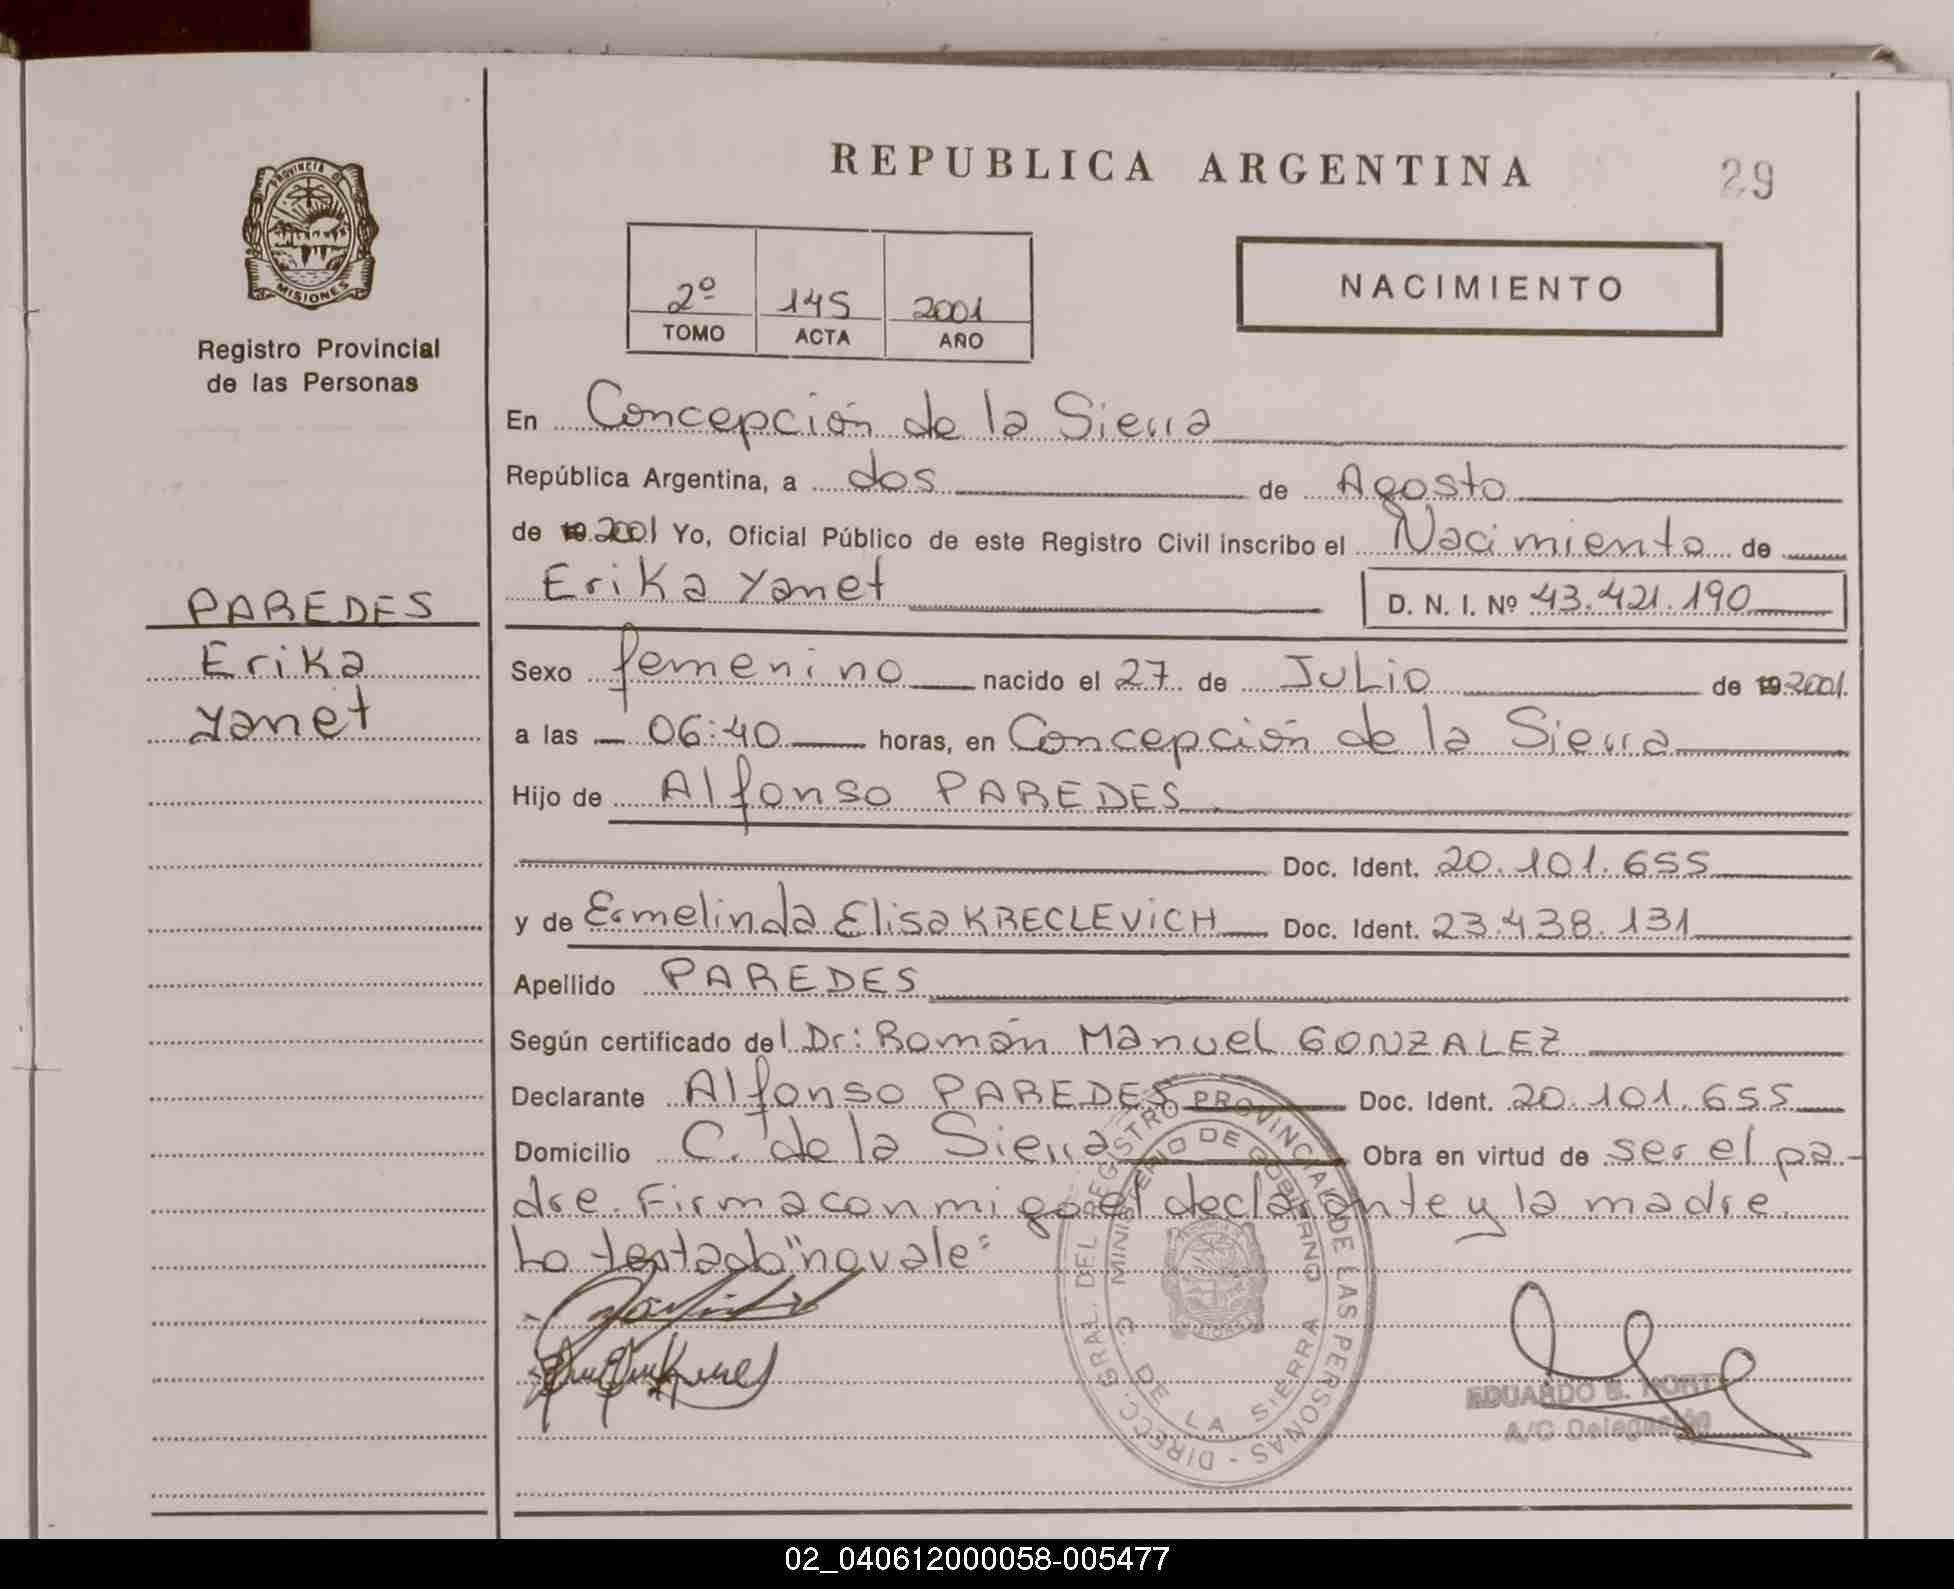 REPUBLICA ARGENTINA
29
PROVINCIA DE
MISIONES
Registro Provincial
de las Personas
2º 145 2001
TOMO ACTA AÑO
NACIMIENTO
En Concepción de la Sierra
República Argentina, a dos de Agosto
de 19 2001 Yo, Oficial Público de este Registro Civil inscribo el Nacimiento de
Erika Yanet D. N. I. Nº 43.421.190
PAREDES
Erika
Yanet
Sexo femenino nacido el 27 de Julio de 19 2001.
a las 06:40 horas, en Concepción de la Sierra
Hijo de Alfonso PAREDES
Doc. Ident. 20.101.655
y de Ermelinda Elisa KRECLEVICH Doc. Ident. 23.438.131
Apellido PAREDES
Según certificado del Dr: Román Manuel GONZALEZ
Declarante Alfonso PAREDES Doc. Ident. 20.101.655
Domicilio C. de la Sierra Obra en virtud de ser el pa-
dre. Firma conmigo el declarante y la madre.
Lo testado "no vale"
DIRECC. GRAL. DEL REGISTRO PROVINCIAL DE LAS PERSONAS -
MINISTERIO DE GOBIERNO
C. DE LA SIERRA
MISIONES
EDUARDO
A/C Delegación
02_040612000058-005477